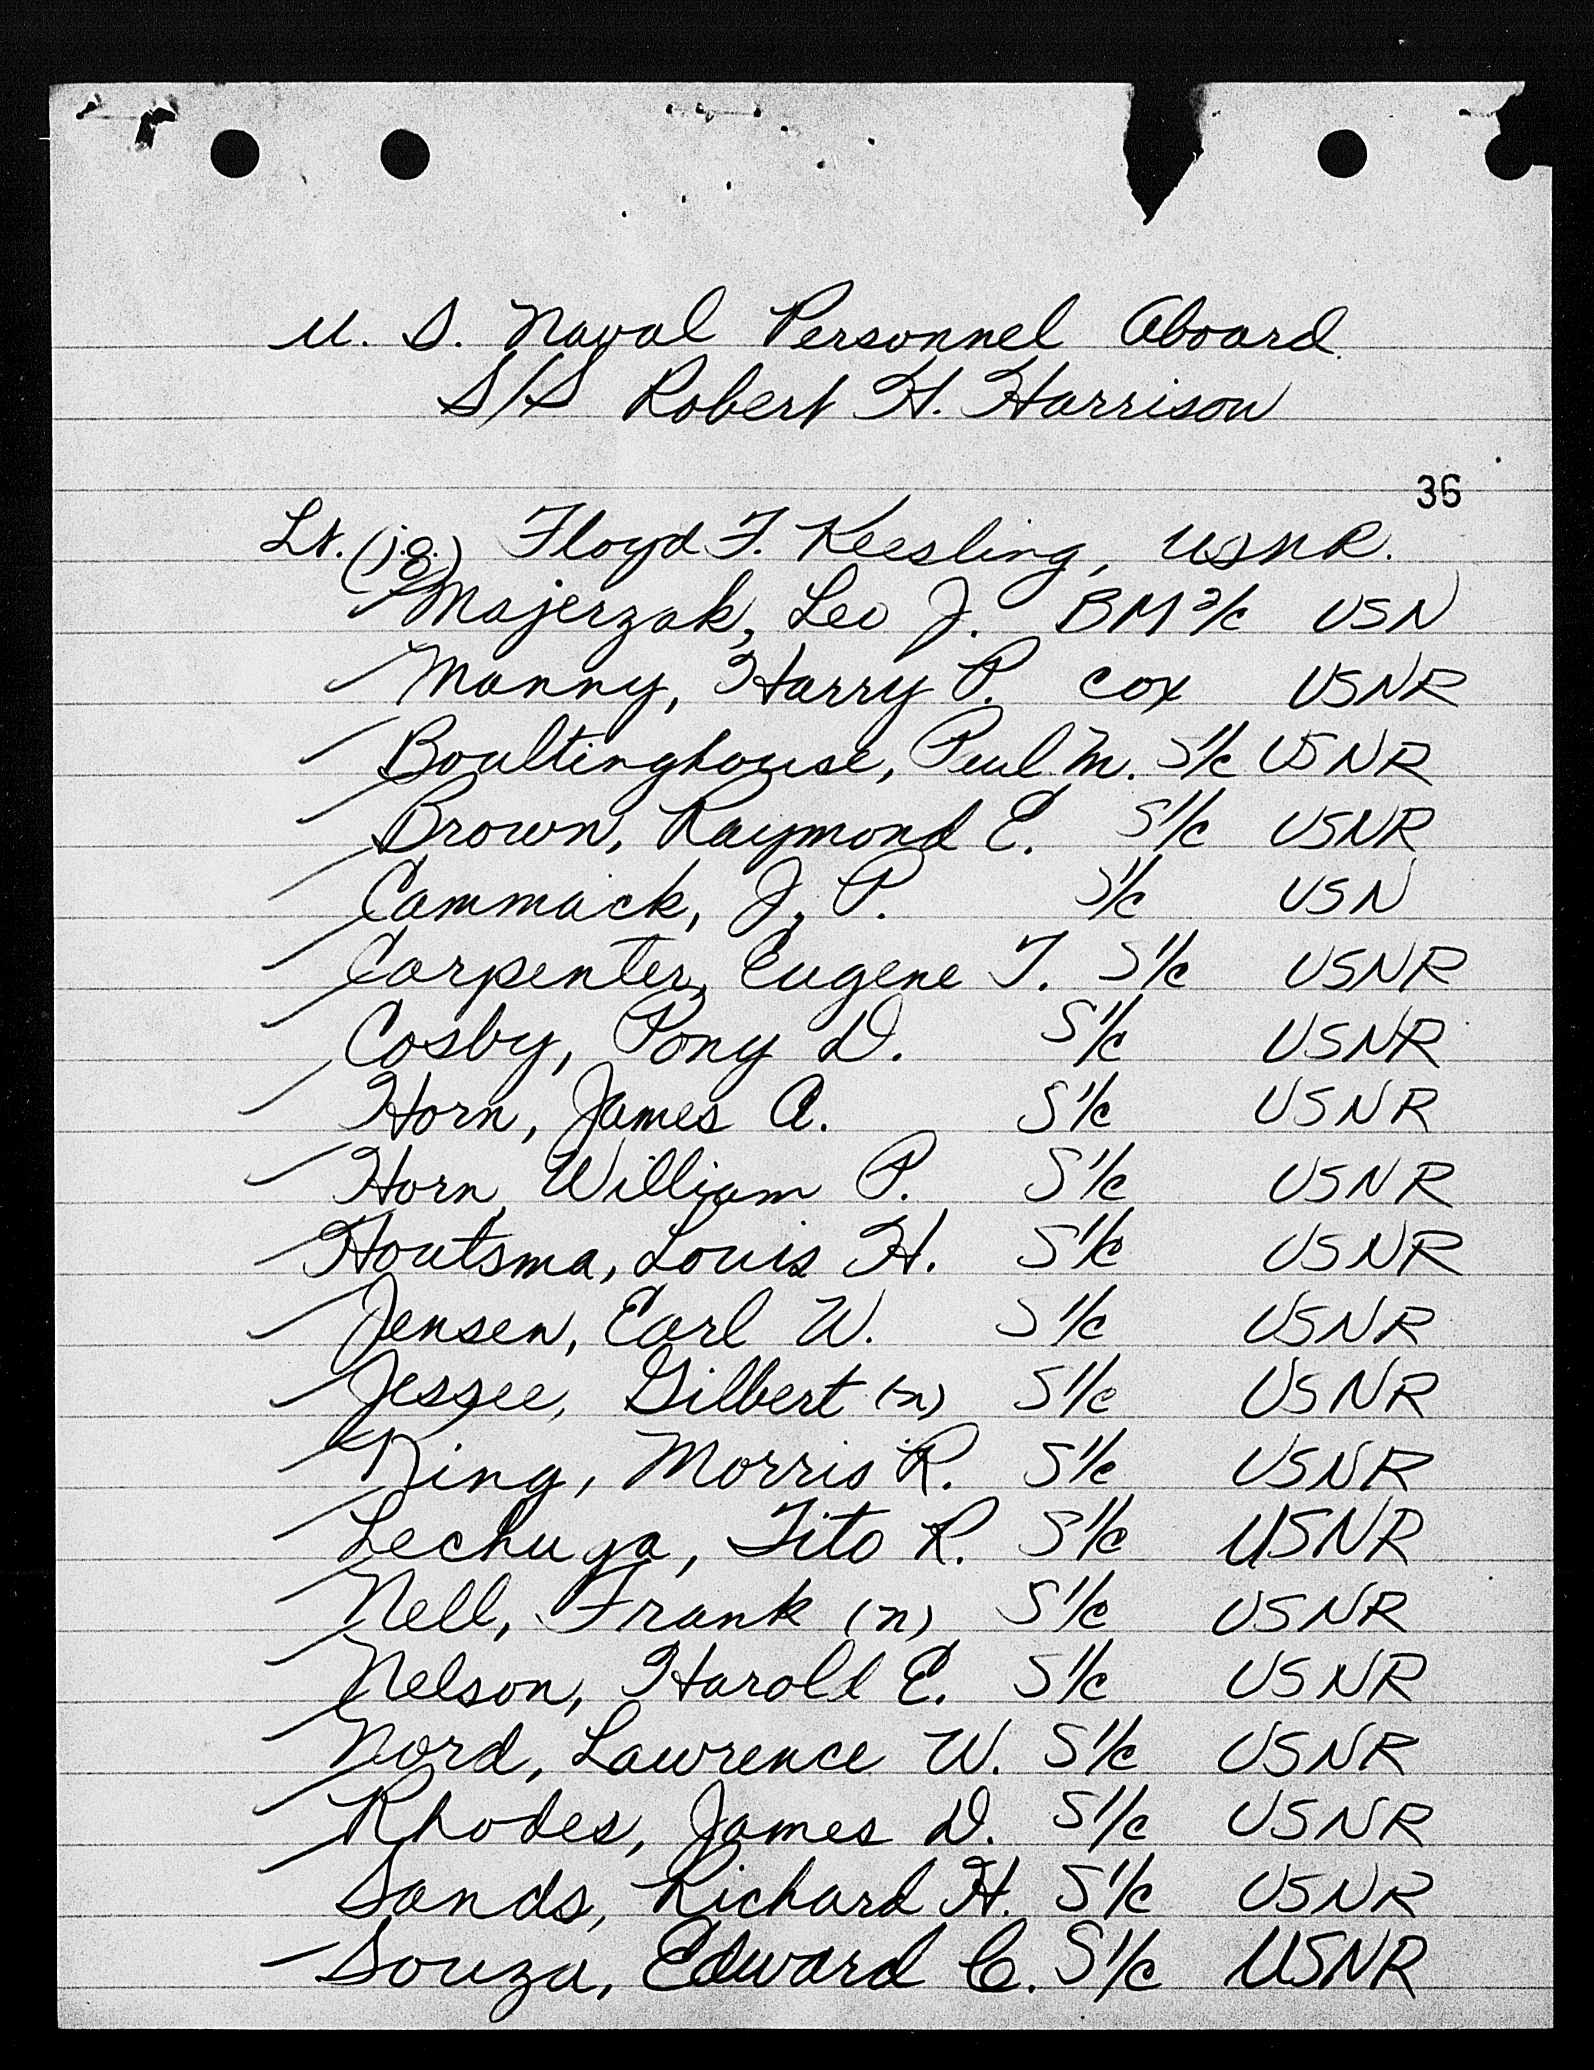 U. S. Naval Personnel Aboard
S/S Robert H. Harrison
36
Lt. (j.g.) Floyd F. Keesling, USNR.
Majerzak, Leo J. BM 2/c USN
Manny, Harry P. Cox USNR
Boultinghouse, Paul M. S1/c USNR
Brown, Raymond E. S1/c USNR
Cammack, J. P. S1/c USN
Carpenter, Eugene T. S1/c USNR
Cosby, Pony D. S1/c USNR
Horn, James A. S1/c USNR
Horn, William P. S1/c USNR
Houtsma, Louis H. S1/c USNR
Jensen, Earl W. S1/c USNR
Jessee, Gilbert (n) S1/c USNR
King, Morris R. S1/c USNR
Lechuga, Tito R. S1/c USNR
Nell, Frank (n) S1/c USNR
Nelson, Harold E. S1/c USNR
Nord, Lawrence W. S1/c USNR
Rhodes, James D. S1/c USNR
Sands, Richard H. S1/c USNR
Souza, Edward C. S1/c USNR